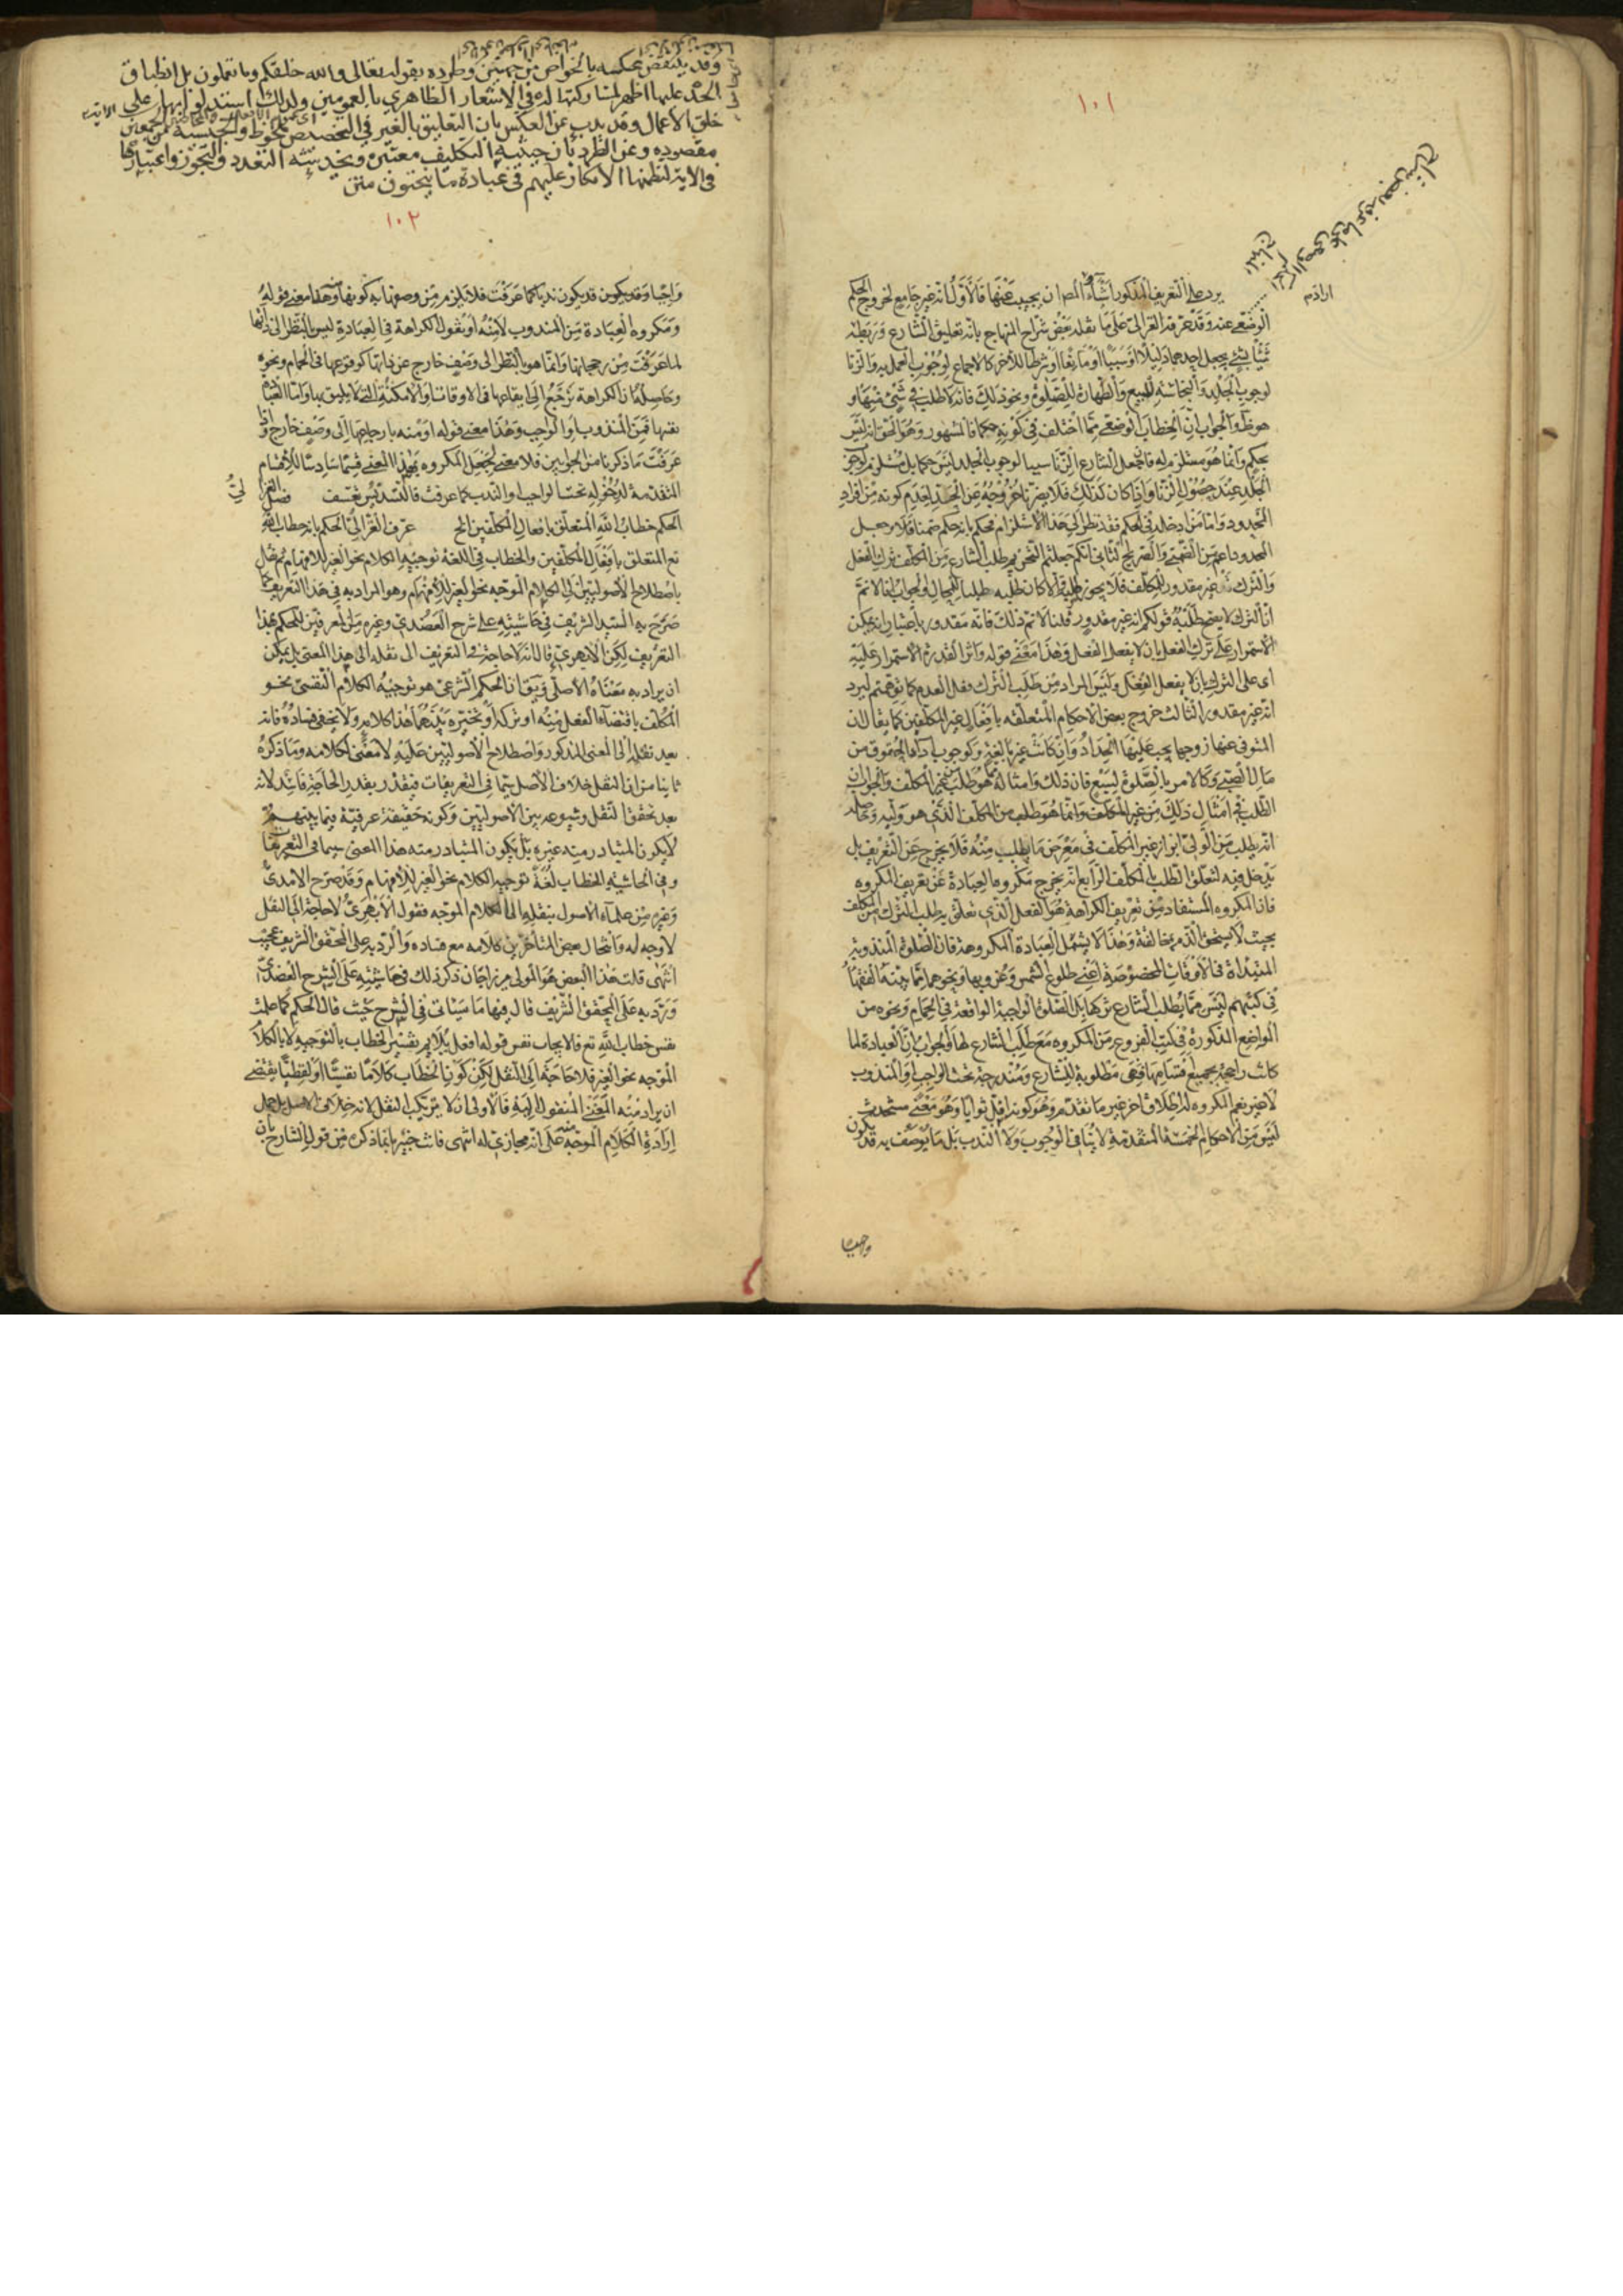 ١٠١
يرد على التعريف المذكور اشياء المصر ان يجيب عنها فالاول انه غير جامع لخروج الحكم
الوضعي عنه وقد عرفه الغزالي على ما نقله بعض شراح المنهاج بانه تعليق الشارع وربطه
شيئا بشئ بجعل احدهما دليلا او سببا او مانعا او شرطا للآخر كالاجماع لوجوب العمل به والزنا
لوجوب الجلد والنجاسة للبيع والطهارة للصلوة ونحو ذلك فانه لا طلب في شئ منها و
والجواب ان الخطاب الوضعي مما اختلف في كونه حكما فالمشهور وهو الحق انه ليس
بحكم وانما هو مستلزم له فان جعل الشارع الزنا سببا لوجوب الجلد ليس حكما بل مستلزم لوجوب
الجلد عند حصول الزنا واذا كان كذلك فلا يضرنا خروجه عن الحد لعدم كونه من افراد
المحدود واما من ادخله في الحكم فقد نظر الى هذا الاستلزام فحكم بانه حكم ضمنا فلا وجعل
المحدود اعم من الضمني والصريح الثاني انكم جعلتم التحريم طلب الشارع من المكلف ترك الفعل
والترك غير مقدور للمكلف فلا يجوز طلبه والا كان طلبه طلبا للمحال والجواب انا لا نم
ان الترك لا يصح طلبه قولكم انه غير مقدور قلنا لا نم ذلك فانه مقدور باعتبار انه يمكن
الاستمرار على ترك الفعل بان لا يفعل الفعل وهذا معنى قوله واثر القدرة الاستمرار عليه
اى على الترك بان لا يفعل الفعل وليس المراد من طلب الترك وفعل العدم كما توهمتم ليرد
انه غير مقدور الثالث خروج بعض الاحكام المتعلقة بافعال غير المكلفين كما يقال ان
المتوفى عنها زوجها يجب عليها الحداد وان كانت غير بالغة وكوجوب اداء الحقوق من
مال الصبي وكالامر بالصلوة لسبع فان ذلك وامثاله هو طلب من غير المكلف والجواب ان
الطلب في امثال ذلك من غير المكلف وانما هو طلب من المكلف الذي هو وليه وحاصله
انه يطلب من الولي ابراز غير المكلف في معرض ما يطلب منه فلا يخرج عن التعريف بل
يدخل فيه لتعلق الطلب بالمكلف الرابع انه يخرج مكروه العبادة عن تعريف المكروه
فان المكروه المستفاد من تعريف الكراهة هو الفعل الذي تعلق به طلب الترك من المكلف
بحيث لا يستحق الذم بمخالفة وهذا لا يشمل العبادة المكروهة فان الصلوة المندوبة
المبتدأة في الاوقات المخصوصة اعني طلوع الشمس وغروبها ونحوهما مما بينه الفقهاء
في كتبهم ليس مما يطلب الشارع تركها بل الصلوة الواجبة الواقعة في الحمام ونحوه من
المواضع المذكورة في كتب الفروع من المكروه مع طلب الشارع لها والجواب ان العبادة لما
كانت راجحة بجميع اقسامها فهي مطلوبة للشارع ومندرجة تحت الواجب او المندوب
لا غير نعم المكروه له اطلاق آخر غير ما تقدم وهو كونه اقل ثوابا وهو معنى مستحدث
ليس من الاحكام الخمسة المتقدمة لا ينافي الوجوب ولا الندب بل ما يوصف به قد يكون
واجبا
وقد ينتقض عكسه بالخواص من جهتين وطرده بقوله تعالى والله خلقكم وما تعملون بل انطباق
الحد عليها اظهر لمشاركتها له في الاشعار الظاهري بالعمومين ولذلك استدلوا بها على
خلق الاعمال وقد يذب عن العكس بان التعليق بالغير في التخصيص ملحوظ والجنسية من الجمعين
مقصودة وعن الطرد بان حيثية التكليف معتبرة
في الاية لتضمنها الانكار عليهم في عبادة ما ينحتون متن
١٠٢
واجبا وقد يكون قد يكون ندبا كما عرفت فلا يلزم من وصفها به كونها وهذا معنى قوله
ومكروه العبادة من المندوب لانه او نقول الكراهة في العبادة ليس بالنظر الى ذاتها
لما عرفت من رجحانها وانما هو بالنظر الى وصف خارج عن ذاتها كوقوعها في الحمام ونحوه
وحاصله ان الكراهة ترجع الى ايقاعها في الاوقات او الامكنة التي لا يليق بها واما العبادة
نفسها فمن المندوب او الواجب وهذا معنى قوله او منه بارجاعها الى وصف خارج واذا
عرفت ما ذكرنا من الجوابين فلا معنى لجعل المكروه بهذا المعنى قسما سادسا للاقسام
المتقدمة لدخوله تحت الواجب او الندب كما عرفت فالتسديس تعسف فصل
الحكم خطاب الله المتعلق بافعال المكلفين الخ عرف الغزالي الحكم بانه خطاب الله
تع المتعلق بافعال المكلفين والخطاب في اللغة توجيه الكلام نحو الغير للافهام ثم نقل
باصطلاح الاصوليين الى الكلام الموجه نحو الغير للافهام وهو المراد به في هذا التعريف كما
صرح به السيد الشريف في حاشيته على شرح العضدي وغيره من المعرفين للحكم بهذا
التعريف لكن الابهري قال انه لا حاجة في التعريف الى نقله الى هذا المعنى بل يمكن
ان يراد به معناه الاصلي فيق ان الحكم الشرعي هو توجيه الكلام النفسي نحو
المكلف باقتضاء الفعل منه او تركه او تخييره بينهما هذا كلامه ولا يخفى فساده فانه
بعد نقله الى المعنى المذكور واصطلاح الاصوليين عليه لا معنى لكلامه وما ذكره
ثانيا من ان النقل خلاف الاصل سيما في التعريفات فيقدر بقدر الحاجة فاسد لانه
بعد تحقق النقل وشيوعه بين الاصوليين وكونه حقيقة عرفية فيما بينهم
لا يكون المتبادر منه غيره بل يكون المتبادر منه هذا المعنى سيما في التعريفات
وفي الحاشية الخطاب لغة توجيه الكلام نحو الغير للافهام وقد صرح الامدي
وغيره من علماء الاصول بنقله الى الكلام الموجه فقول الابهري لا حاجة الى النقل
لا وجه له وانتحال بعض المتأخرين كلامه مع فساده والرد به على المحقق الشريف عجيب
انتهى قلت هذا البعض هو المولى ميرزاجان ذكر ذلك في حاشيته على الشرح العضدي
ورد به على المحقق الشريف قال فيها ما سيأتي في الشرح حيث قال الحكم كما علمت
نفس خطاب الله تع فالايجاب نفس قوله افعل يلايم تفسير الخطاب بالتوجيه لا بالكلام
الموجه نحو الغير فلا حاجة الى النقل لكن كون الخطاب كلاما نفسيا او لفظيا يقتضي
ان يراد منه المعنى المنقول اليه فالاولى ان لا يرتكب النقل لانه خلاف الاصل بل يحمل
ارادة الكلام الموجه منه على انه مجازي له انتهى فانت خبير بانما ذكره من قول الشارح بان